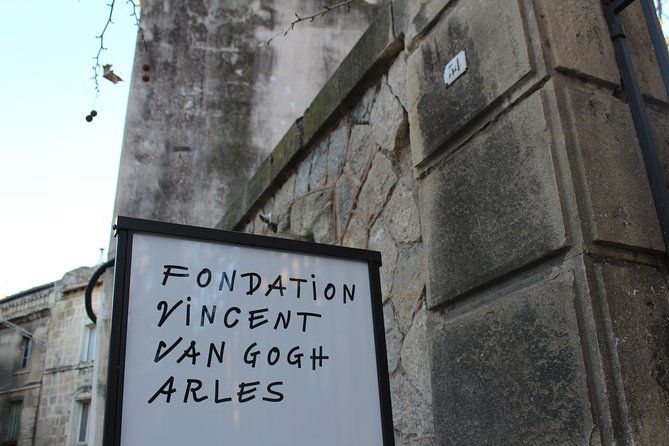 FONDATION
VINCENT
VAN GOGH
ARLES